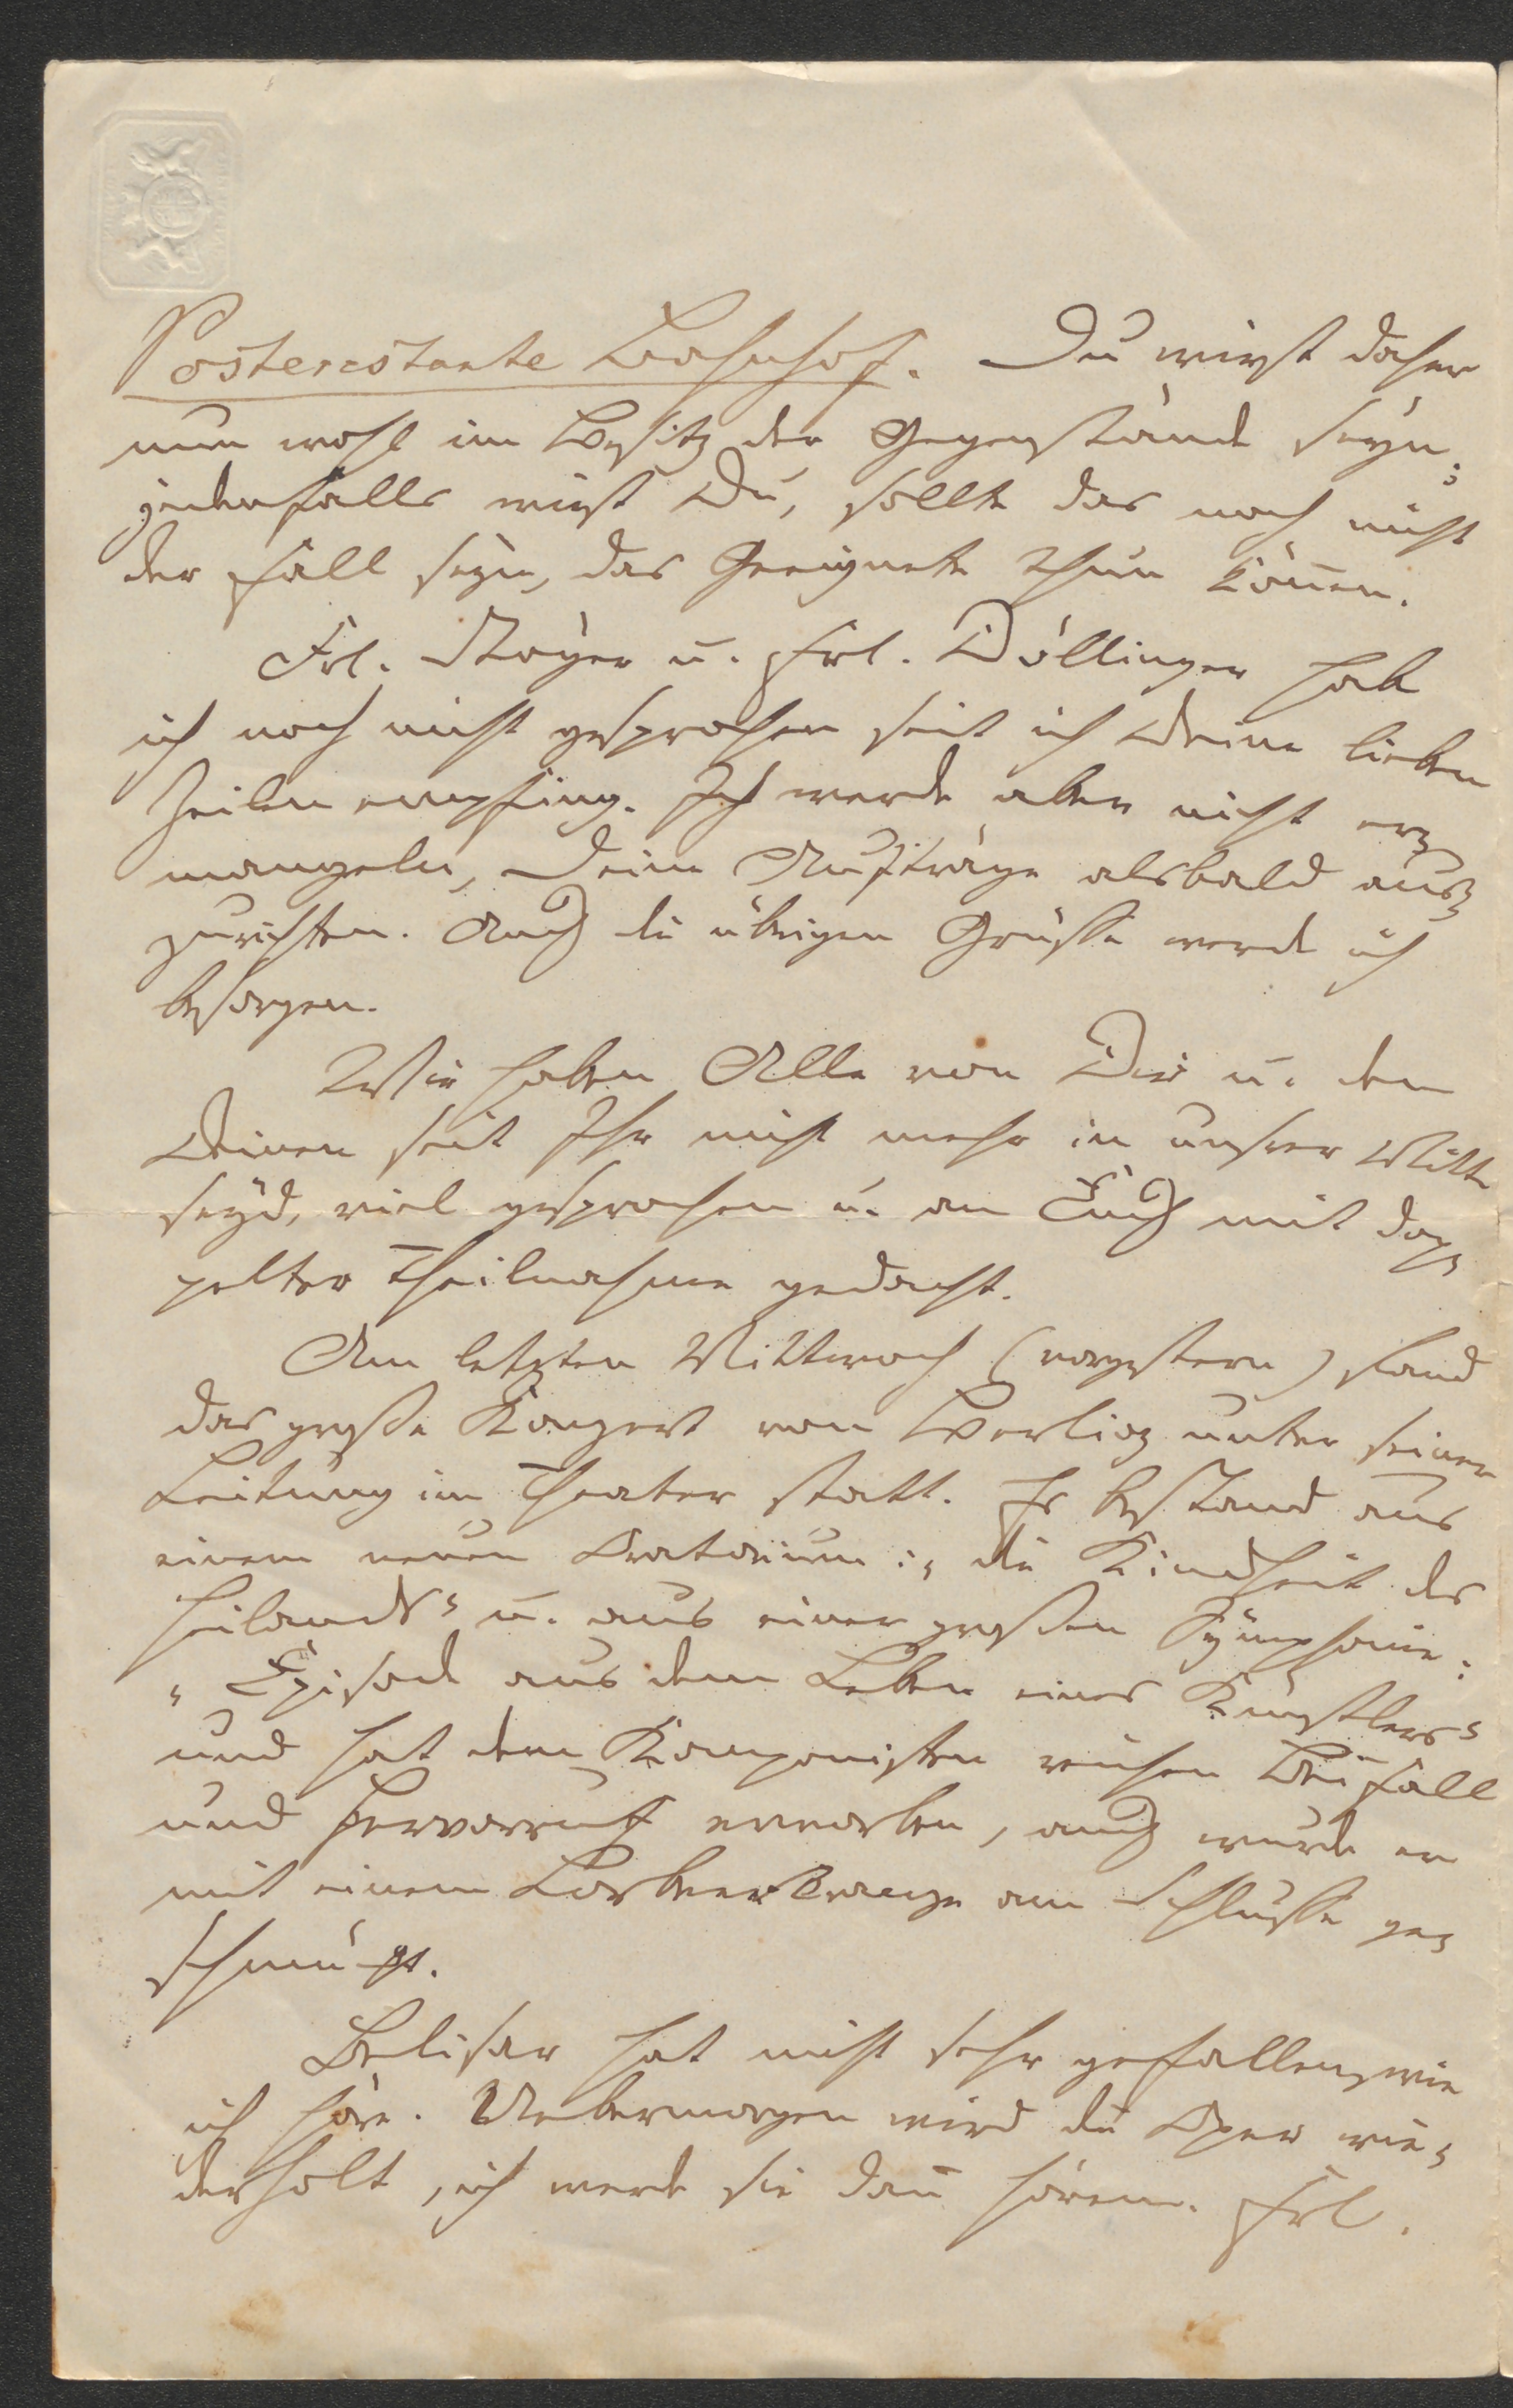 Posterestante Bahnhof. Du wirst daher
nun wohl im Besitz der Gegenstände seyn;
jedenfalls wirst Du, sollte das noch nicht
der Fall seyn, das Geeignete thun können.
Frl. Mayer u. Frl. Döllinger habe
ich noch nicht gesprochen seit ich Deine lieben
Zeilen empfing. Ich werde aber nicht er-
mangeln, Deine Aufträge alsbald aus-
zurichten. Auch die übrigen Grüsse werde ich
besorgen.
Wir haben Alle von Dir u. den
Deinen seit Ihr nicht mehr in unsrer Mitte
seyd, viel gesprochen u. an Euch mit dop-
pelter Theilnahme gedacht.
Am letzten Mittwoch (vorgestern) fand
das große Konzert von Berlioz unter seiner
Leitung im Theater statt. Es bestand aus
einem neuen Oratorium: „die Kindheit des
Heilands" u. aus einer großen Symphonie:
„Episode aus dem Leben eines Künstlers"
und hat dem Komponisten reichen Beifall
und Hervorruf erworben, auch wurde er
mit einem Lorbeerkranze am Schlusse ge-
schmückt.
Belisar hat nicht sehr gefallen, wie
ich höre. Uebermorgen wird die Oper wie-
derholt, ich werde sie dann hören. Frl.